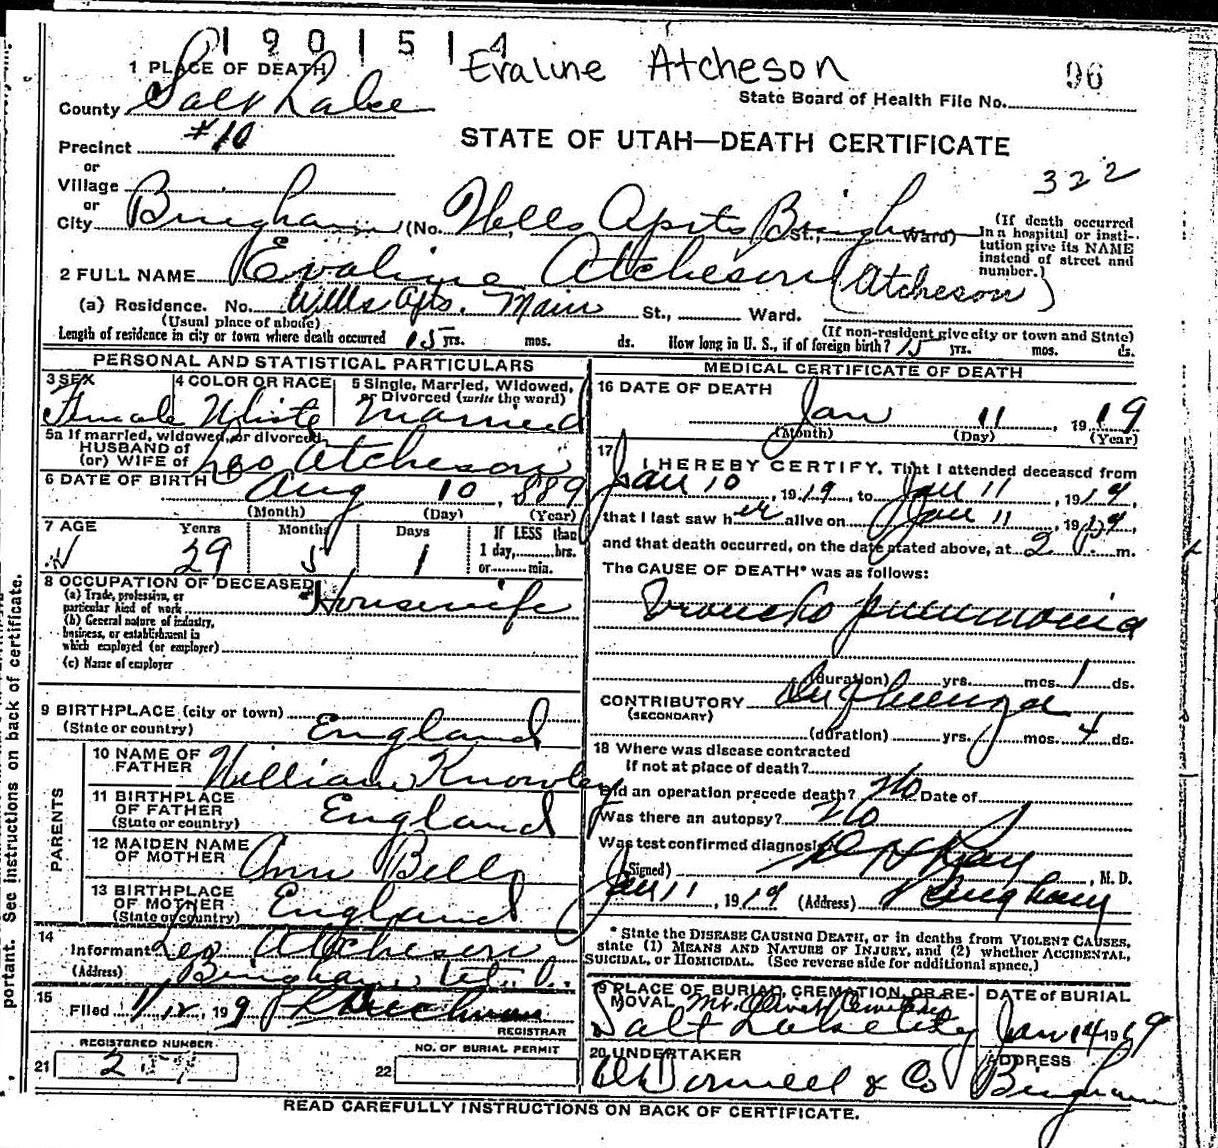 1901514
Evaline Atcheson
96
1 PLACE OF DEATH
State Board of Health File No.
County Salt Lake
Precinct #10
STATE OF UTAH—DEATH CERTIFICATE
or
Village
322
or
City Bingham (No. Wells Apts Bingham St., Ward)
(If death occurred in a hospital or institution give its NAME instead of street and number.)
2 FULL NAME Evaline Atcheson (Atcheson)
(a) Residence. No. Wells Apts. Main St., Ward.
(Usual place of abode) (If non-resident give city or town and State)
Length of residence in city or town where death occurred 15 yrs. mos. ds. How long in U. S., if of foreign birth? 15 yrs. mos. ds.
PERSONAL AND STATISTICAL PARTICULARS
3 SEX 4 COLOR OR RACE 5 Single, Married, Widowed, or Divorced (write the word)
Female White Married
5a If married, widowed, or divorced
HUSBAND of
(or) WIFE of Leo Atcheson
6 DATE OF BIRTH Aug 10, 1889
(Month) (Day) (Year)
7 AGE Years Months Days If LESS than
29 5 1 1 day, hrs.
or min.
8 OCCUPATION OF DECEASED
(a) Trade, profession, or
particular kind of work Housewife
(b) General nature of industry,
business, or establishment in
which employed (or employer)
(c) Name of employer
9 BIRTHPLACE (city or town)
(State or country) England
PARENTS
10 NAME OF
FATHER William Knowley
11 BIRTHPLACE
OF FATHER
(State or country) England
12 MAIDEN NAME
OF MOTHER Ann Bell
13 BIRTHPLACE
OF MOTHER
(State or country) England
14
Informant Leo Atcheson
(Address) Bingham, Utah.
15
Filed 1/12, 1919
REGISTRAR
REGISTERED NUMBER
21 2
NO. OF BURIAL PERMIT
22
MEDICAL CERTIFICATE OF DEATH
16 DATE OF DEATH
Jan 11, 1919
(Month) (Day) (Year)
17
I HEREBY CERTIFY, That I attended deceased from
Jan 10, 1919, to Jan 11, 1919,
that I last saw her alive on Jan 11, 1919,
and that death occurred, on the date stated above, at 2 P. m.
The CAUSE OF DEATH* was as follows:
Broncho pneumonia
(duration) yrs. mos. 1 ds.
CONTRIBUTORY Influenza
(SECONDARY)
(duration) yrs. mos. 4 ds.
18 Where was disease contracted
if not at place of death?
Did an operation precede death? No Date of
Was there an autopsy? No
Was test confirmed diagnosis
(Signed) D H Ray, M. D.
Jan 11, 1919 (Address) Bingham
* State the DISEASE CAUSING DEATH, or in deaths from VIOLENT CAUSES,
state (1) MEANS AND NATURE OF INJURY, and (2) whether ACCIDENTAL,
SUICIDAL, OR HOMICIDAL. (See reverse side for additional space.)
19 PLACE OF BURIAL, CREMATION, OR REMOVAL DATE of BURIAL
Mt. Olivet Cemetery
Salt Lake City Jan 14 1919
20 UNDERTAKER ADDRESS
O'Donnell & Co Bingham
READ CAREFULLY INSTRUCTIONS ON BACK OF CERTIFICATE.
portant. See instructions on back of certificate.